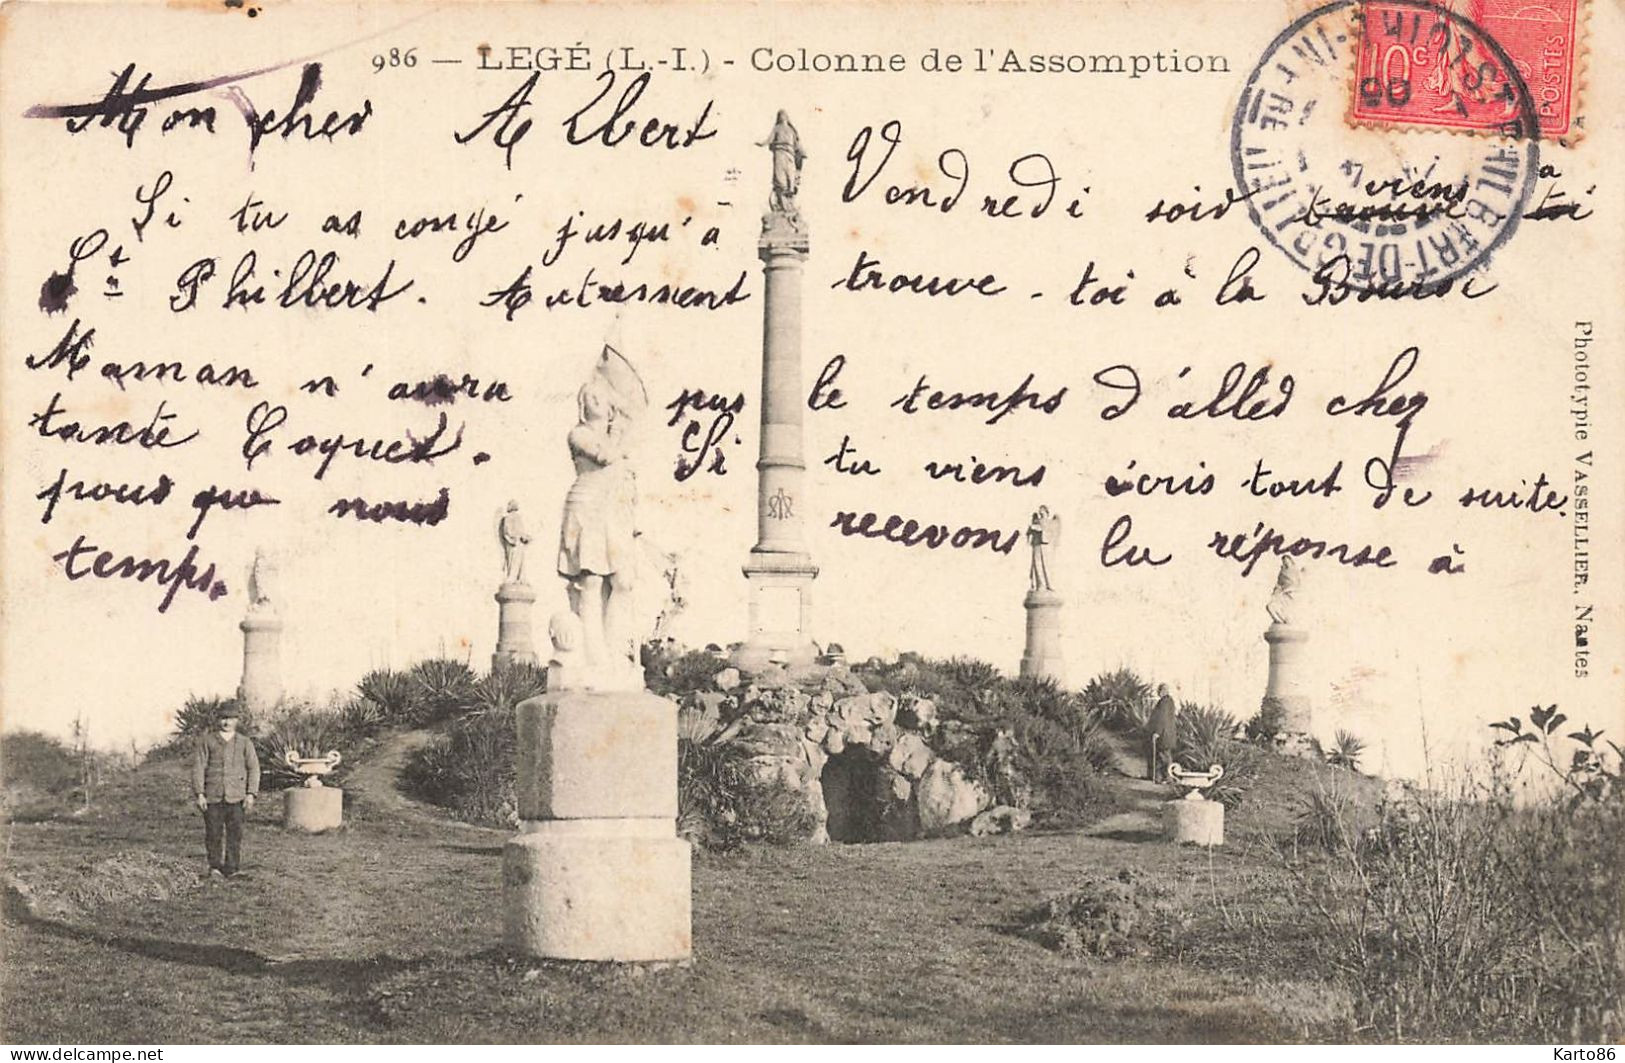 986 — LEGÉ (L.-I.) - Colonne de l'Assomption
10c
POSTES
ST PHILBERT-DE-GD LIEU
LOIRE-INFRE
Mon cher Albert
Si tu as congé jusqu'à Vendredi soir ~~trouve~~ viens ~~toi~~ a
St Philbert. Autrement trouve-toi à la Bourse
Maman n'aura pas le temps d'aller chez
tante Coquet. Si tu viens écris tout de suite.
pour que nous recevons la réponse à
temps.
Phototypie VASSELLIER, Nantes
Delcampe.net
Karto86